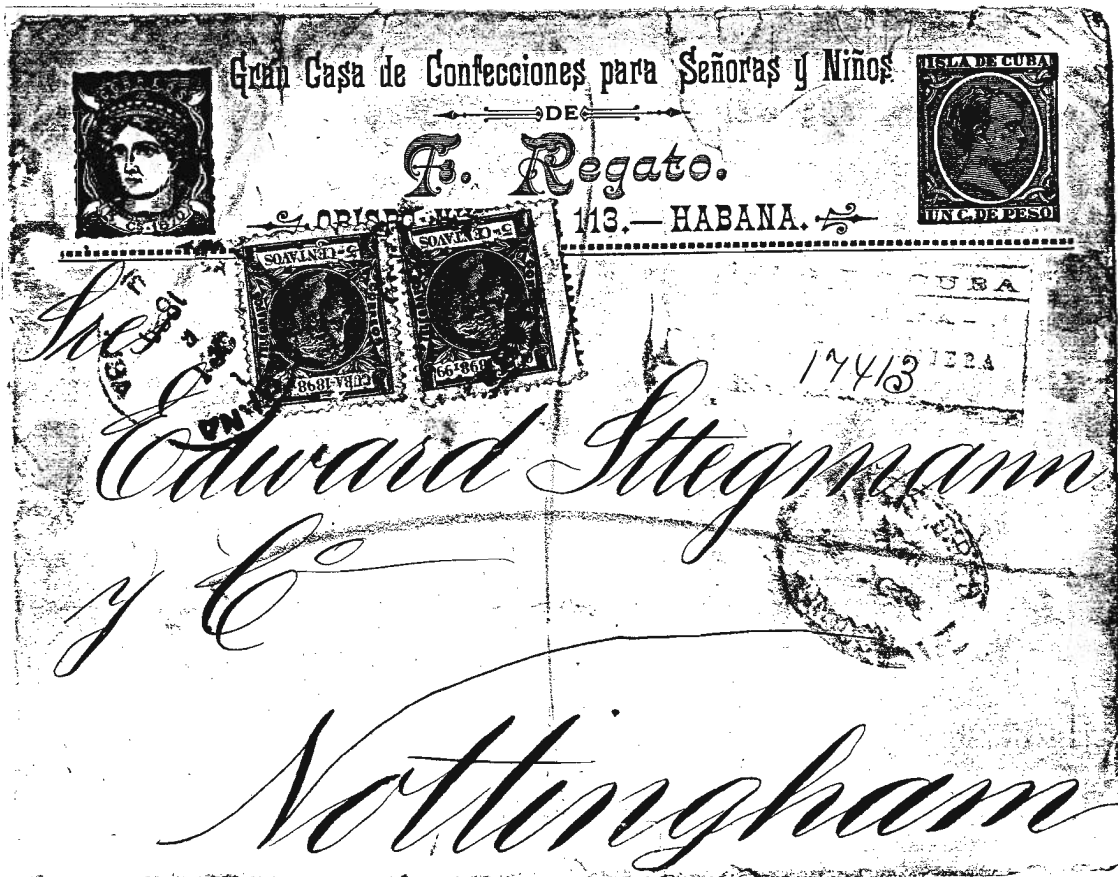 Gran Casa de Confecciones para Señoras y Niños
DE
F. Regato.
113.— HABANA.
ISLA DE CUBA
UN C. DE PESO
5 Cs CENTAVOS
CUBA-1898
CENTAVOS
1898 Y 99
CUBA
17413
Sres
Edward Sttegmann
y Ca
Nottingham